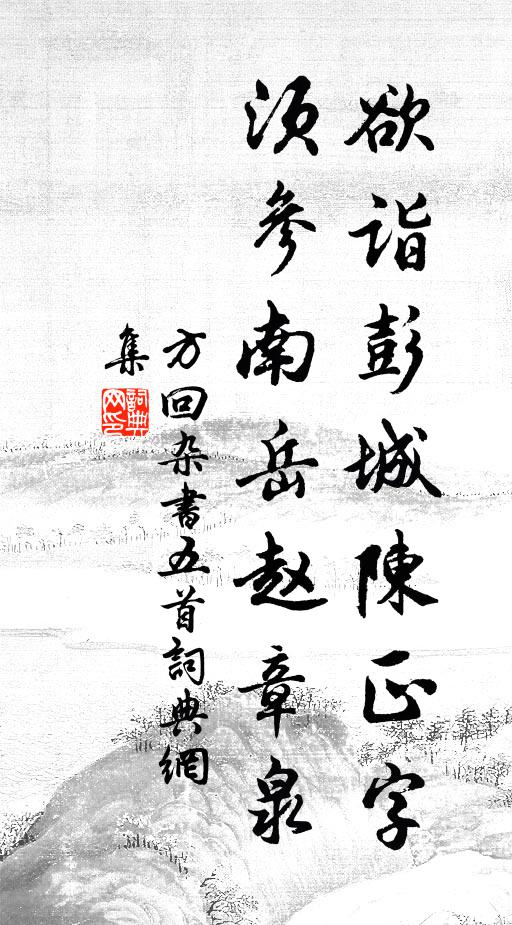 欲诣彭城陳正字
须參南岳赵章泉
方回杂書五首詞典網
集
詞典
网印